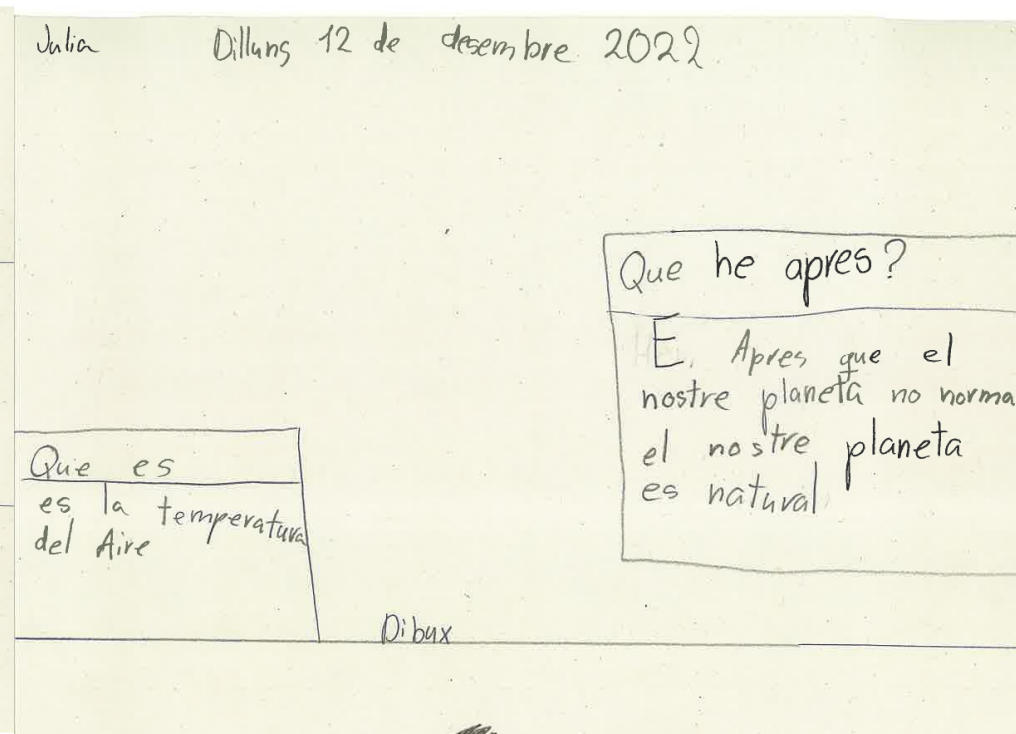 Julia Dilluns 12 de desembre 2022
Que he apres?
E. Apres que el
nostre planeta no norma
el nostre planeta
es natural
Que es
es la temperatura
del Aire
Dibux